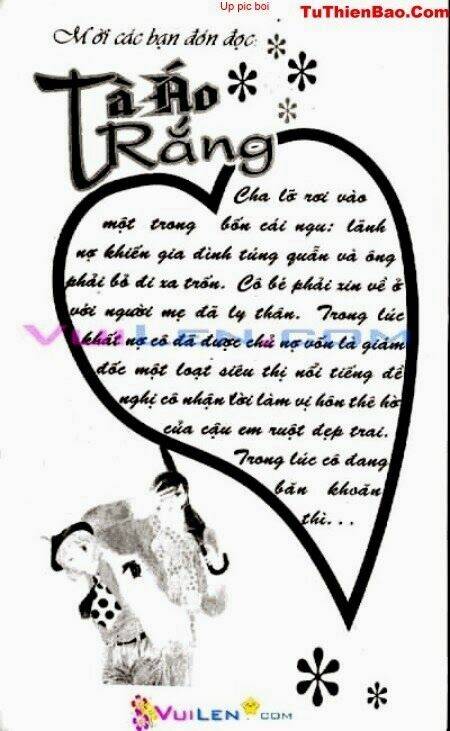 Up pic boi
TuThienBao.Com
Mời các bạn đón đọc:
Tà Áo
Rắng
Cha lỡ rơi vào
một trong bốn cái ngu: lãnh
nợ khiến gia đình túng quẫn và ông
phải bỏ đi xa trốn. Cô bé phải xin về ở
với người mẹ đã ly thân. Trong lúc
khất nợ cô đã được chủ nợ vốn là giám
đốc một loạt siêu thị nổi tiếng đề
nghị cô nhận lời làm vị hôn thê hờ
của cậu em ruột đẹp trai.
Trong lúc cô đang
băn khoăn
thì...
VuiLen.com
VuiLen.com